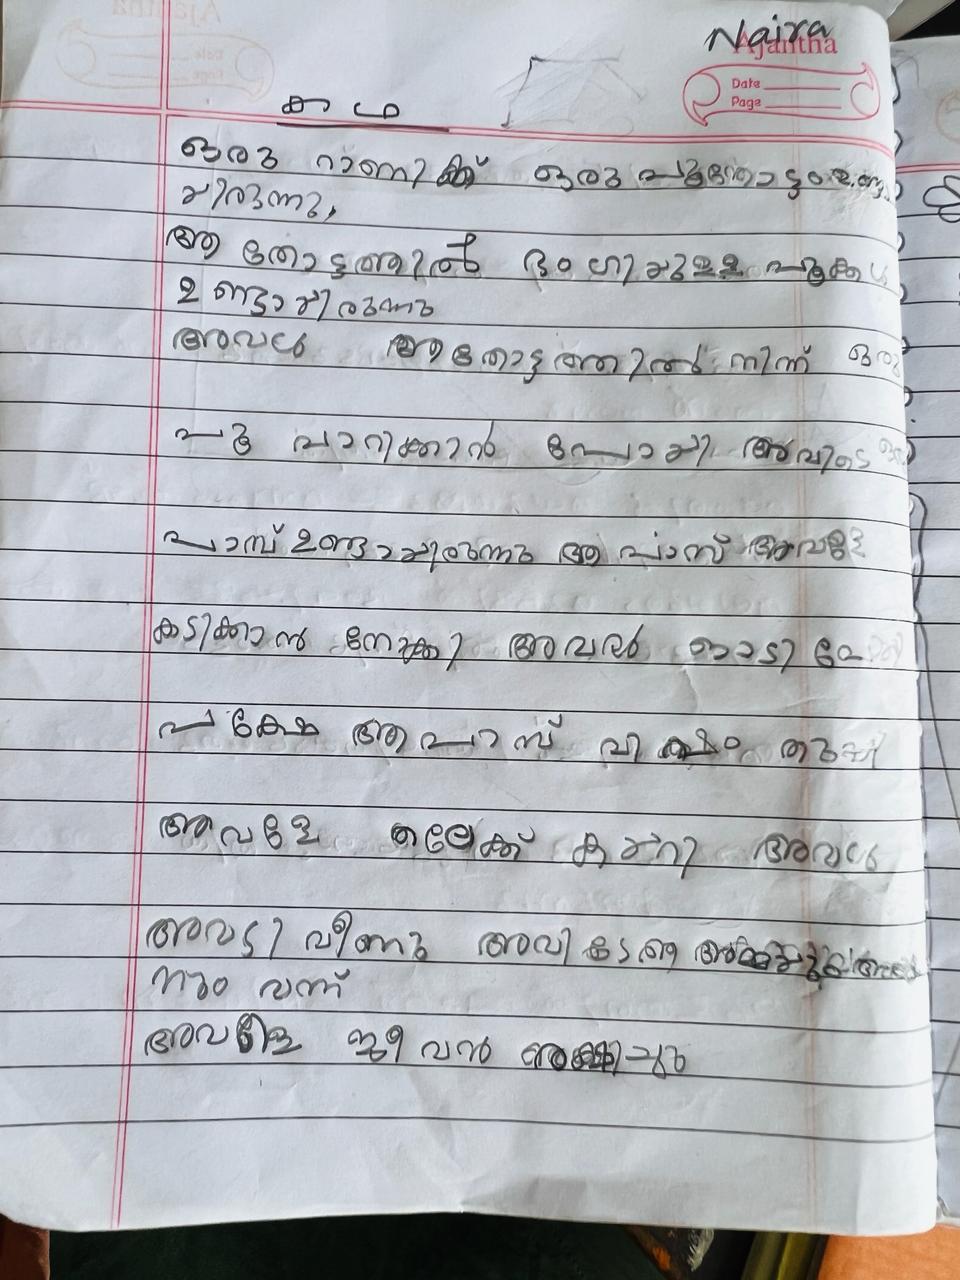 Naira
Ajantha
Date
Page
കഥ
ഒരു റാണിക്ക് ഒരു പൂന്തോട്ടം
യിരുന്നു,
ആ തോട്ടത്തിൽ ഭംഗിയുള്ള പൂക്കൾ
ഉണ്ടായിരുന്നു
അവൾ ആ തോട്ടത്തിൽ നിന്ന് ഒരു
പൂ പറിക്കാൻ പോയി അവിടെ
പാമ്പ് ഉണ്ടായിരുന്നു ആ പാമ്പ് അവളേ
കടിക്കാൻ നോക്കി അവൾ ഓടി
പക്ഷേ ആ പാമ്പ് വിഷം തുപ്പി
അവളേ തലേക്ക് കയറി അവൾ
അവടി വീണു അവിടത്തെ
വന്ന്
അവളെ ജീവൻ